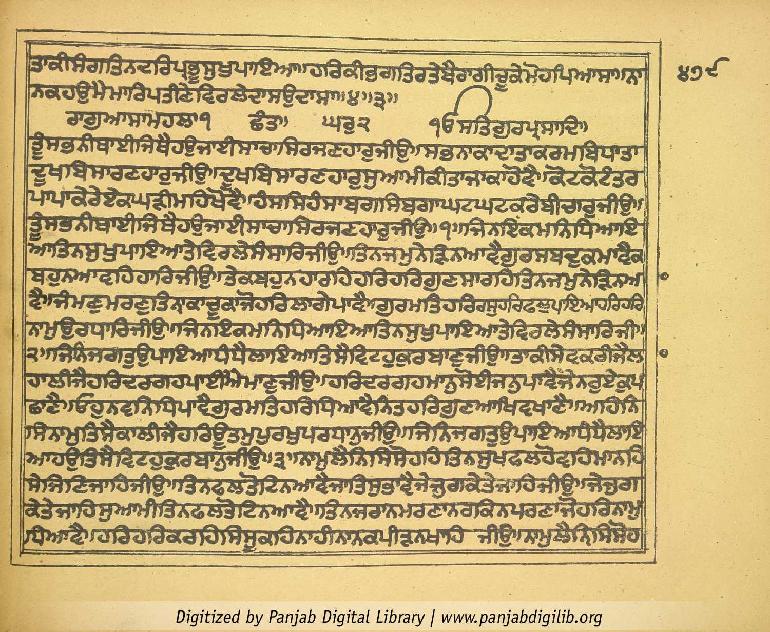 ਤਾਕੀਸੰਗਤਿਨਦਰਿਪ੍ਰਭੂਸੁਖੁਪਾਇਆ॥ਹਰਿਕੀਭਗਤਿਰਤੇਬੈਰਾਗੀਚੂਕੇਮੋਹਪਿਆਸਾ॥ਨਾ
ਨਕਹਉਮੈਮਾਰਿਪਤੀਣੇਵਿਰਲੇਦਾਸਉਦਾਸਾ॥੪॥੩॥
੪੭੯
ਰਾਗੁਆਸਾਮਹਲਾ੧ ਛੰਤਾ॥ ਘਰੁ੨ ੧ਓੁਸਤਿਗੁਰਪ੍ਰਸਾਦਿ॥
ਤੂੰਸਭਨੀਥਾਈਜਿਥੈਹਉਜਾਈਸਾਚਾਸਿਰਜਣਹਾਰੁਜੀਉ॥ਸਭਨਾਕਾਦਾਤਾਕਰਮਬਿਧਾਤਾ
ਦੂਖਬਿਸਾਰਣਹਾਰੁਜੀਉ॥ਦੂਖਬਿਸਾਰਣਹਾਰੁਸੁਆਮੀਕੀਤਾਜਾਕਾਹੋਵੈ॥ਕੋਟਕੋਟੰਤਰ
ਪਾਪਾਕੇਰੇਏਕਘੜੀਮਹਿਖੋਵੈ॥ਹੰਸਸਿਹੰਸਾਬਗਸਿਬਗਾਘਟਘਟਕਰੇਬੀਚਾਰੁਜੀਉ॥
ਤੂੰਸਭਨੀਥਾਈਜਿਥੈਹਉਜਾਈਸਾਚਾਸਿਰਜਣਹਾਰੁਜੀਉ॥੧॥ਜਿਨਇਕਮਨਿਧਿਆਇ
ਆਤਿਨਸੁਖੁਪਾਇਆਤੇਵਿਰਲੇਸੰਸਾਰਿਜੀਉ॥ਤਿਨਜਮੁਨੇੜਿਨਆਵੈਗੁਰਸਬਦੁਕਮਾਵੈਕ
ਬਹੁਨਆਵਹਿਹਾਰਿਜੀਉ॥ਤੇਕਬਹੁਨਹਾਰਹਿਹਰਿਹਰਿਗੁਣਸਾਰਹਿਤਿਨਜਮੁਨੇੜਿਨਆ
ਵੈ॥ਜੰਮਣੁਮਰਣੁਤਿਨਾਕਾਚੂਕਾਜੋਹਰਿਲਾਗੇਪਾਵੈ॥ਗੁਰਮਤਿਹਰਿਰਸੁਹਰਿਫਲੁਪਾਇਆਹਰਿਹਰਿ
ਨਾਮੁਉਰਧਾਰਿਜੀਉ॥ਜਿਨਇਕਮਨਿਧਿਆਇਆਤਿਨਸੁਖੁਪਾਇਆਤੇਵਿਰਲੇਸੰਸਾਰਿਜੀ॥
੨॥ਜਿਨਿਜਗਤੁਉਪਾਇਆਧੰਧੈਲਾਇਆਤਿਸੈਵਿਟਹੁਕੁਰਬਾਣੁਜੀਉ॥ਤਾਕੀਸੇਵਕਰੀਜੈਲ
ਾਹਾਲੀਜੈਹਰਿਦਰਗਹਪਾਈਐਮਾਣੁਜੀਉ॥ਹਰਿਦਰਗਹਮਾਨੁਸੋਈਜਨੁਪਾਵੈਜੋਨਰੁਏਕੁਪ
ਛਾਣੈ॥ਓਹੁਨਵਨਿਧਿਪਾਵੈਗੁਰਮਤਿਹਰਿਧਿਆਵੈਨਿਤਹਰਿਗੁਣਆਖਿਵਖਾਣੈ॥ਅਹਿਨਿ
ਸਿਨਾਮੁਤਿਸੈਕਾਲੀਜੈਹਰਿਊਤਮੁਪੁਰਖੁਪਰਧਾਨੁਜੀਉ॥ਜਿਨਿਜਗਤੁਉਪਾਇਆਧੰਧੈਲਾਇ
ਆਹਉਤਿਸੈਵਿਟਹੁਕੁਰਬਾਨੁਜੀਉ॥੩॥ਨਾਮੁਲੈਨਿਸਿਸੋਹਹਿਤਿਨਸੁਖਫਲਹੋਵਹਿਮਾਨਹਿ
ਸੇਜਿਣਿਜਾਹਿਜੀਉ॥ਤਿਨਫਲਤੋਟਿਨਆਵੈਜਾਤਿਸੁਭਾਵੈਜੇਜੁਗਕੇਤੇਜਾਹਿਜੀਉ॥ਜੇਜੁਗ
ਕੇਤੇਜਾਹਿਸੁਆਮੀਤਿਨਫਲਤੋਟਿਨਆਵੈ॥ਤਿਨਜਰਾਨਮਰਣਾਨਰਕਿਨਪਰਣਾਜੋਹਰਿਨਾਮੁ
ਧਿਆਵੈ॥ਹਰਿਹਰਿਕਰਹਿਸਿਸੂਕਹਿਨਾਹੀਨਾਨਕਪੀੜਨਖਾਹਿ ਜੀਉ॥ਨਾਮੁਲੈਨਿਸਿਸੋਹ
Digitized by Panjab Digital Library | www.panjabdigilib.org